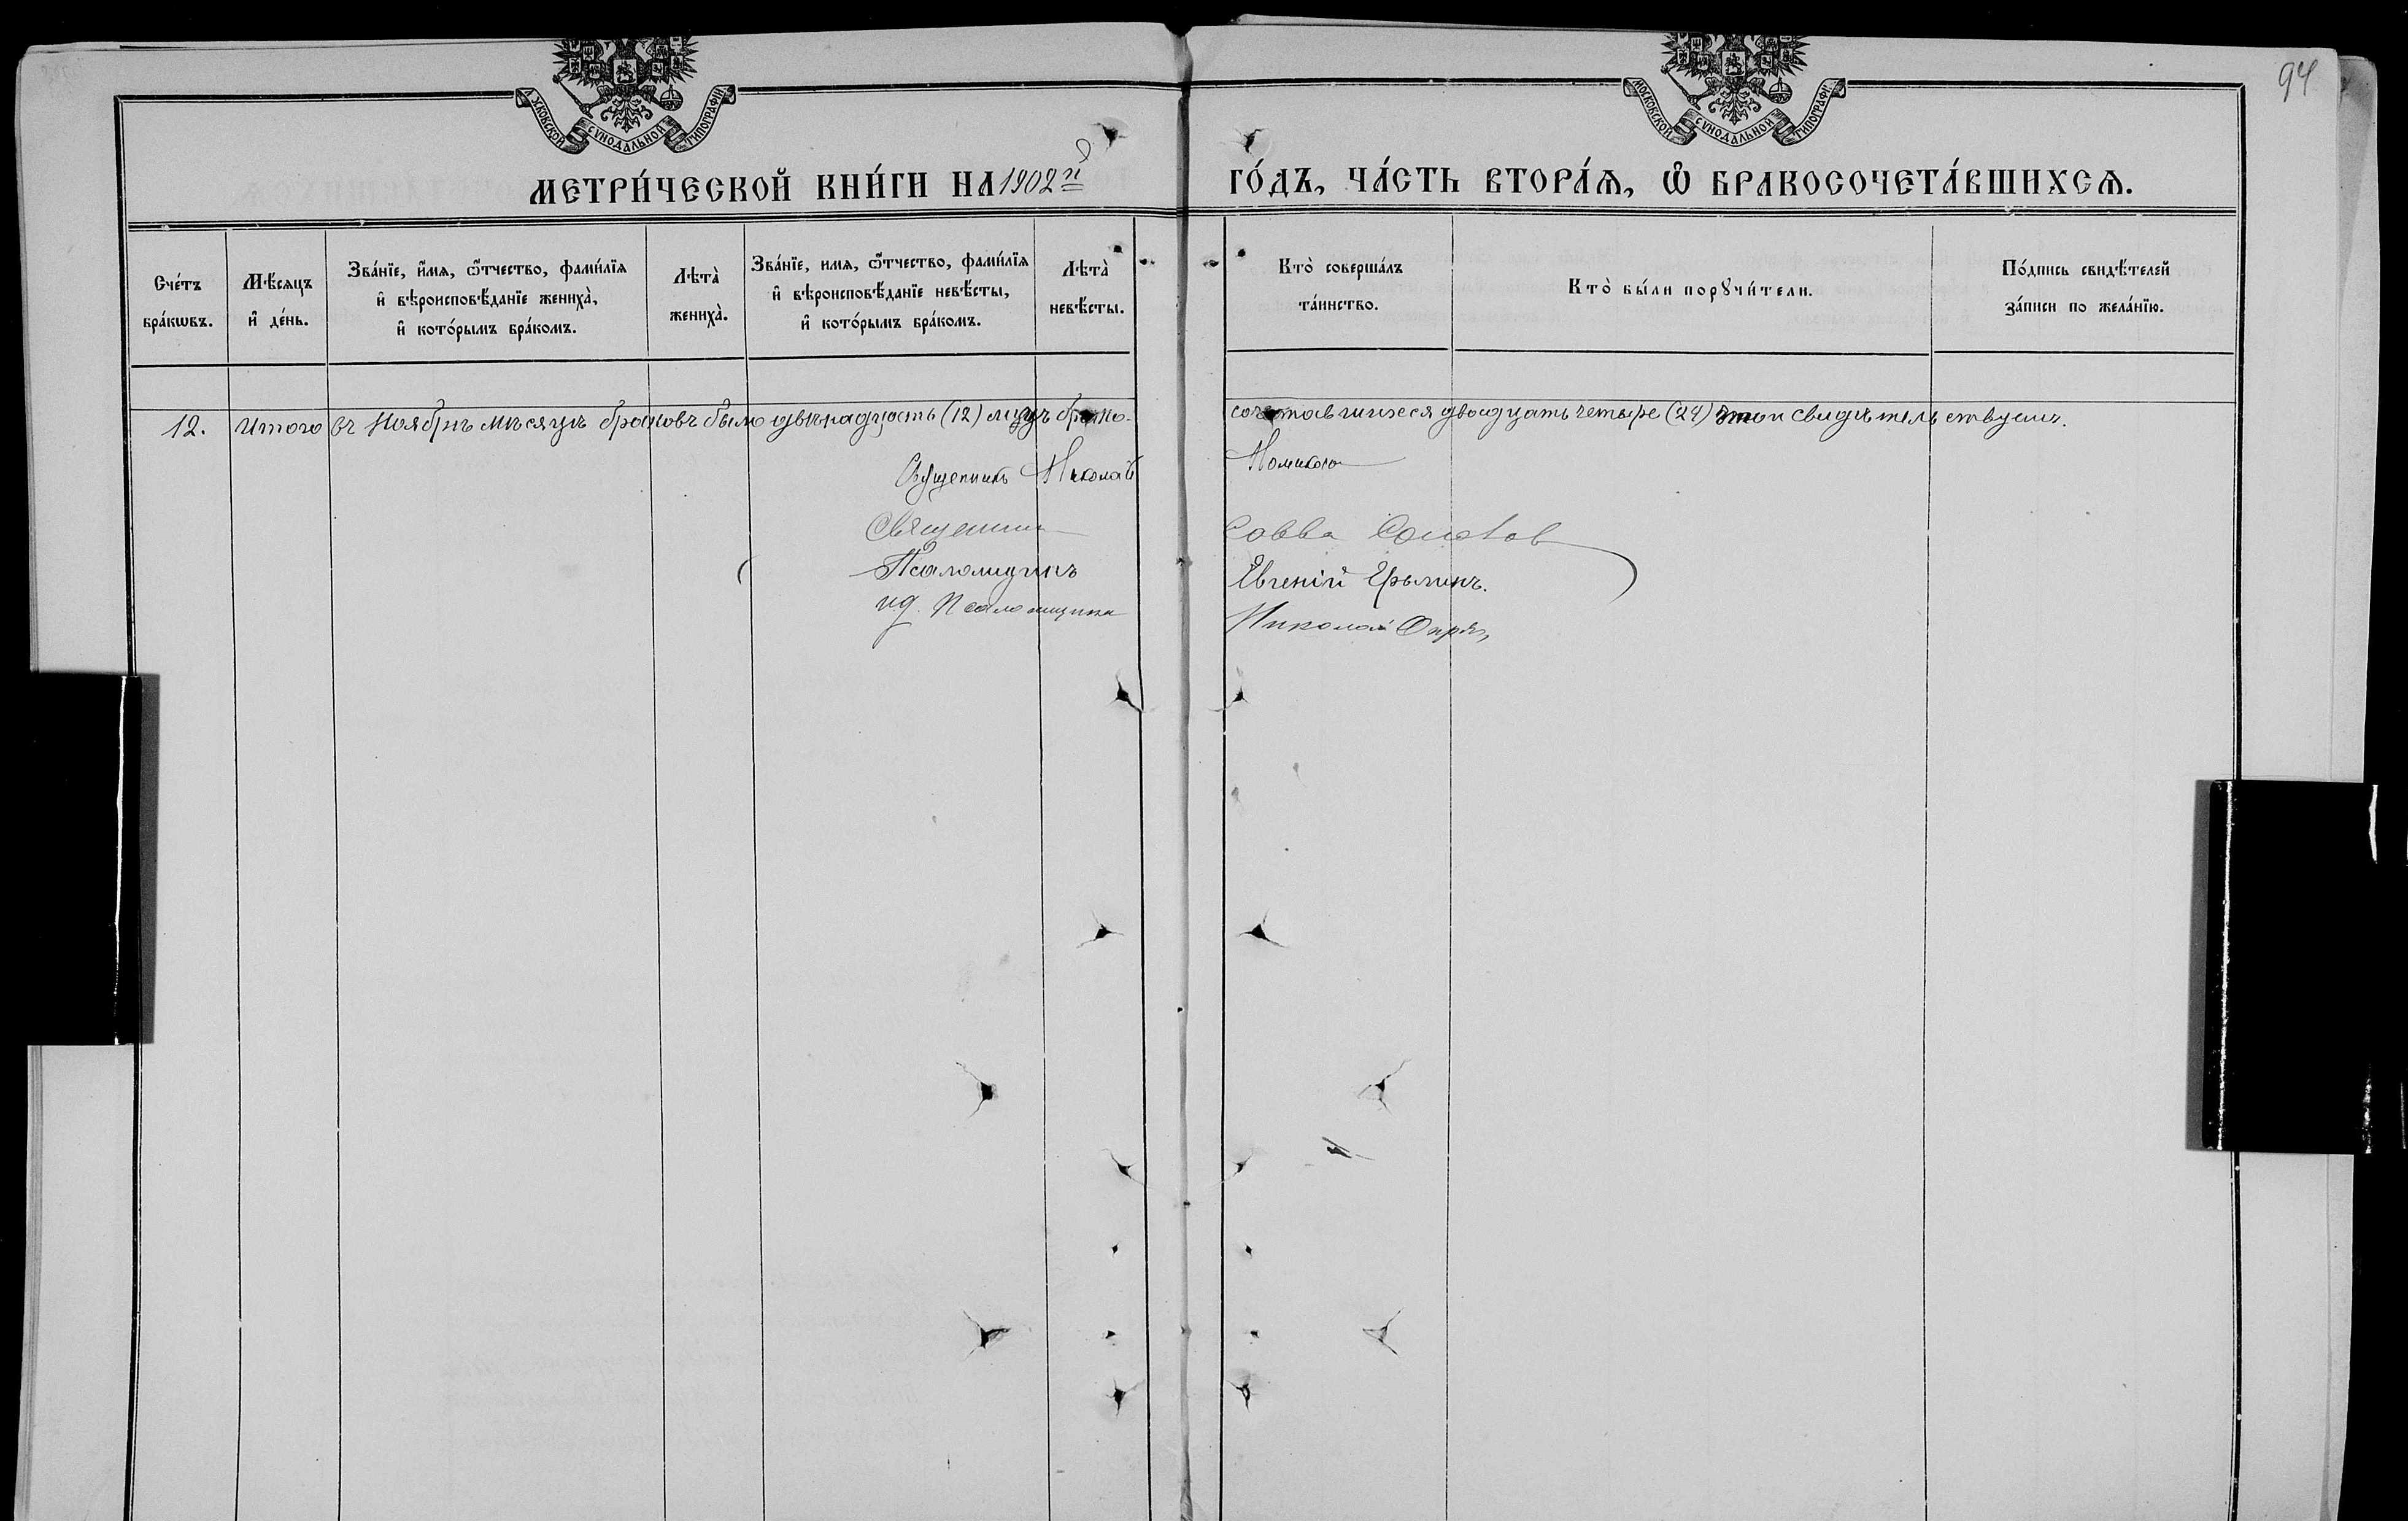 94
МОСКОВСКОЙ СѴНОДАЛЬНОЙ ТИПОГРАФІИ
МОСКОВСКОЙ СѴНОДАЛЬНОЙ ТИПОГРАФІИ
МЕТРИ́ЧЕСКОЙ КНИ́ГИ НА 1902й ГО́ДЪ, ЧА́СТЬ ВТОРА́Ѧ, Ѽ БРАКОСОЧЕТА́ВШИХСѦ.
Сче́тъ бра́кѡвъ.
Мѣ́сѧцъ и҆ де́нь.
Зва́нїе, и҆́мѧ, ѻ҆́тчество, фами́лїѧ и҆ вѣроисповѣ́данїе жениха̀, и҆ кото́рымъ бра́комъ.
Лѣта̀ жениха̀.
Зва́нїе, имѧ, ѻ҆́тчество, фами́лїѧ и҆ вѣроисповѣ́данїе невѣ́сты, и҆ кото́рымъ бра́комъ.
Лѣта̀ невѣ́сты.
Кто̀ соверша́лъ та́инство.
Кто̀ бы́ли порꙋчи́тели.
По́дпись свидѣ́телей за́писи по жела́нїю.
12. Итого въ Ноябрѣ мѣсяцѣ браковъ было двѣнадцать (12) лицъ брако- сочетавшихся двадцать четыре (24) въ томъ свидѣтельствуемъ.
Священникъ Николай
Священникъ Савва
Псаломщикъ Евгеній
и.д. Псаломщика Николай